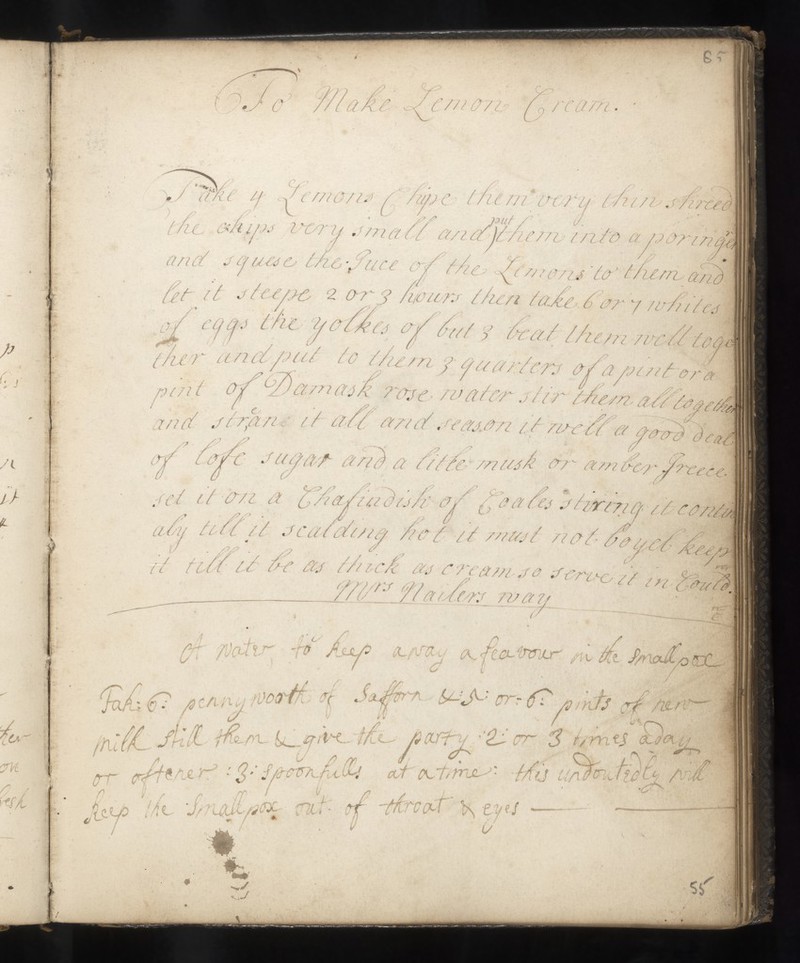 65
To Make Lemon Cream.
Take 4 Lemons Chipe them very thin shreed
the chips very small and put them into a poringer
and squese the Juce of the Lemons to them and
let it steepe 2 or 3 hours then take 6 or 7 whites
of eggs the yolkes of but 3 beat them well toge
ther and put to them 3 quarters of a pint or a
pint of Damask rose water stir them all together
and strane it all and season it well a good Deal
of lofe sugar and a litle musk or amber Greece
set it on a Chafindish of Coales stiring it contin
aly till it scalding hot it must not boyel keep
it till it be as thick as cream so serve it in Could.
Mrs Nailers way
A water to keep away a feavour in the Smallpox
Tak: 6: pennyworth of Safforn &: 5: or: 6: pints of new
milk still them & give the party :2: or 3 times a day
or oftener :3: spoonfulls at a time: this undoutedly will
keep the Smallpox out of throat & eyes
55